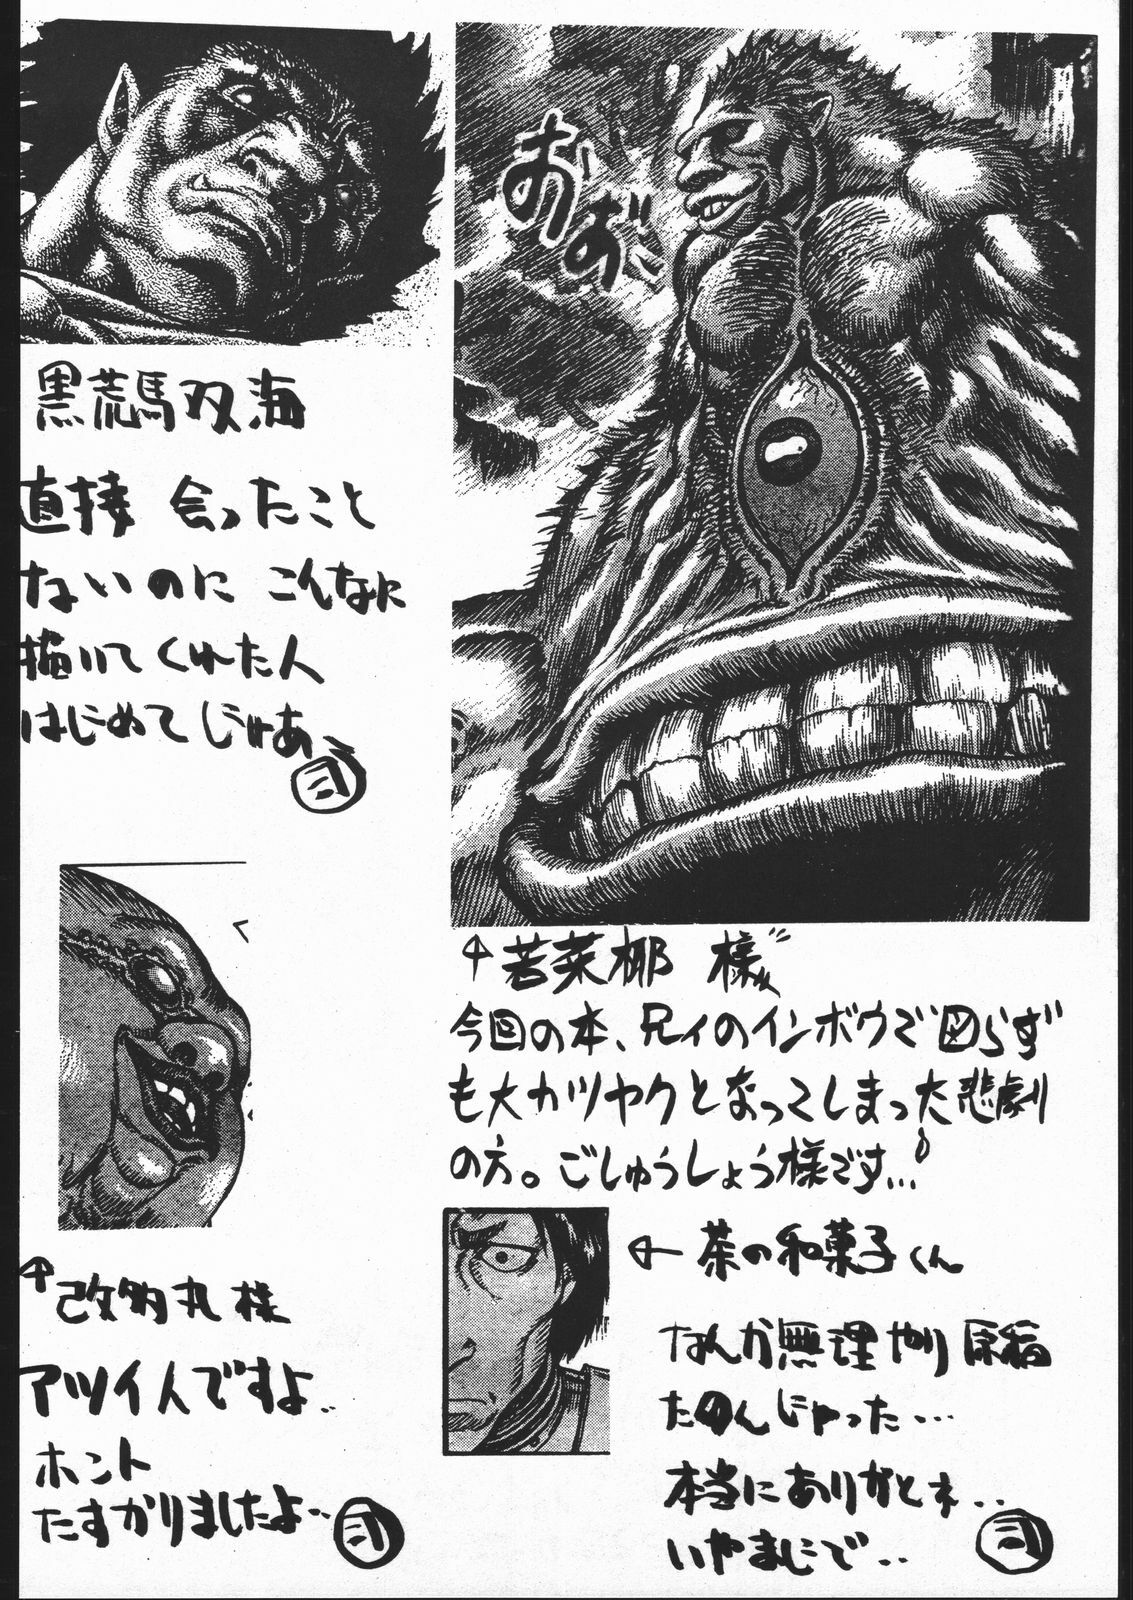 おおお
黒荒馬双海
直接 会ったこと
ないのに こんなに
描いてくれた人
はじめてじゃあ〜
弐
↑若菜椰 様
今回の本、兄ィのインボウで図らず
も大カツヤクとなってしまった悲劇
の方。ごしゅうしょう様です…
←茶の和菓子くん
なんか無理やり原稿
たのんじゃった…
本当にありがとネ..
いやまじで..
弐
↑改多丸様
アツイ人ですよ..
ホント
たすかりましたよ..
弐